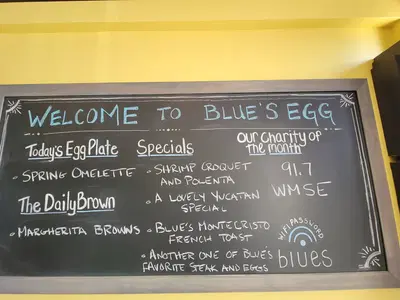 WELCOME TO BLUE'S EGG
Today's Egg Plate
- SPRING OMELETTE
The Daily Brown
- MARGHERITA BROWNS
Specials
- SHRIMP CROQUET
AND POLENTA
- A LOVELY YUCATAN
SPECIAL
- BLUE'S MONTECRISTO
FRENCH TOAST
- ANOTHER ONE OF BLUE'S
FAVORITE STEAK AND EGGS
OUR CHARITY OF
THE MONTH
91.7
WMSE
WIFI PASSWORD
blues